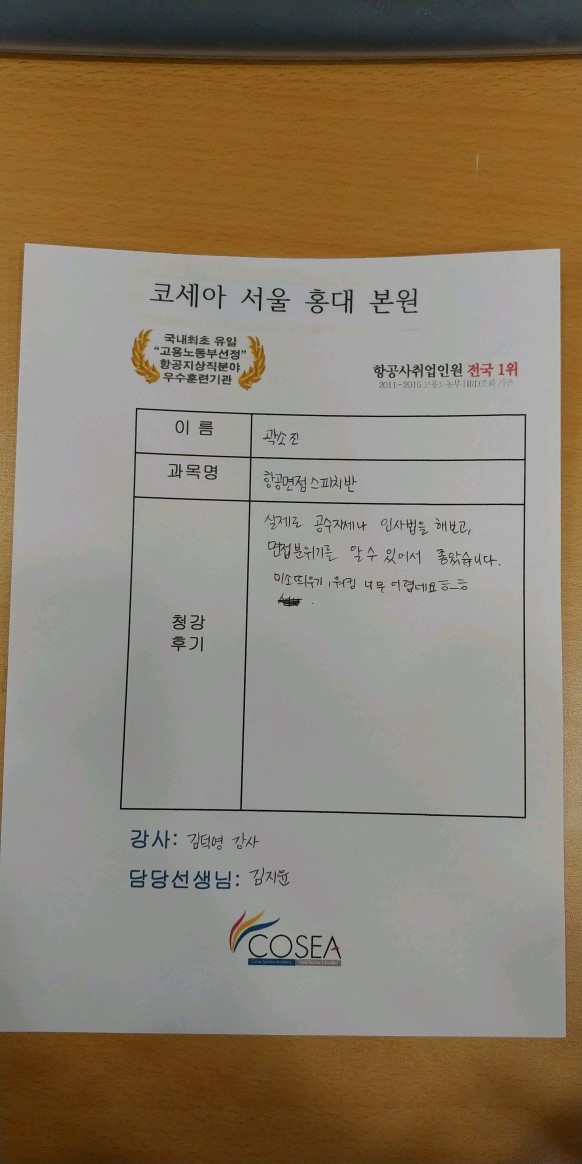 코세아 서울 홍대 본원
국내最초 유일
"고용노동부선정"
항공지상직분야
우수훈련기관
항공사취업인원 전국 1위
2011~2015 고용노동부 HRD조회 기준
이 름
곽소진
과목명
항공면접스피치반
청강
후기
실제로 공수자세나 인사법을 해보고,
면접분위기를 알 수 있어서 좋았습니다.
미소띄우기, 워킹 너무 어렵네요ㅎ_ㅎ
강사: 김덕영 강사
담당선생님: 김지윤
COSEA